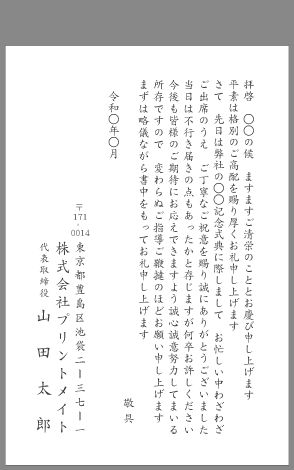 拝啓　〇〇の候　ますますご清栄のこととお慶び申し上げます
平素は格別のご高配を賜り厚くお礼申し上げます
さて　先日は弊社の〇〇記念式典に際しまして　お忙しい中わざわざ
ご出席のうえ　ご丁寧なご祝意を賜り誠にありがとうございました
当日は不行き届きの点もあったかと存じますが何卒お許しください
今後も皆様のご期待にお応えできますよう誠心誠意努力してまいる
所存ですので　変わらぬご指導ご鞭撻のほどお願い申し上げます
まずは略儀ながら書中をもってお礼申し上げます
敬具
令和〇年〇月
〒171-0014
東京都豊島区池袋二ー三七ー一
株式会社プリントメイト
代表取締役　山田太郎